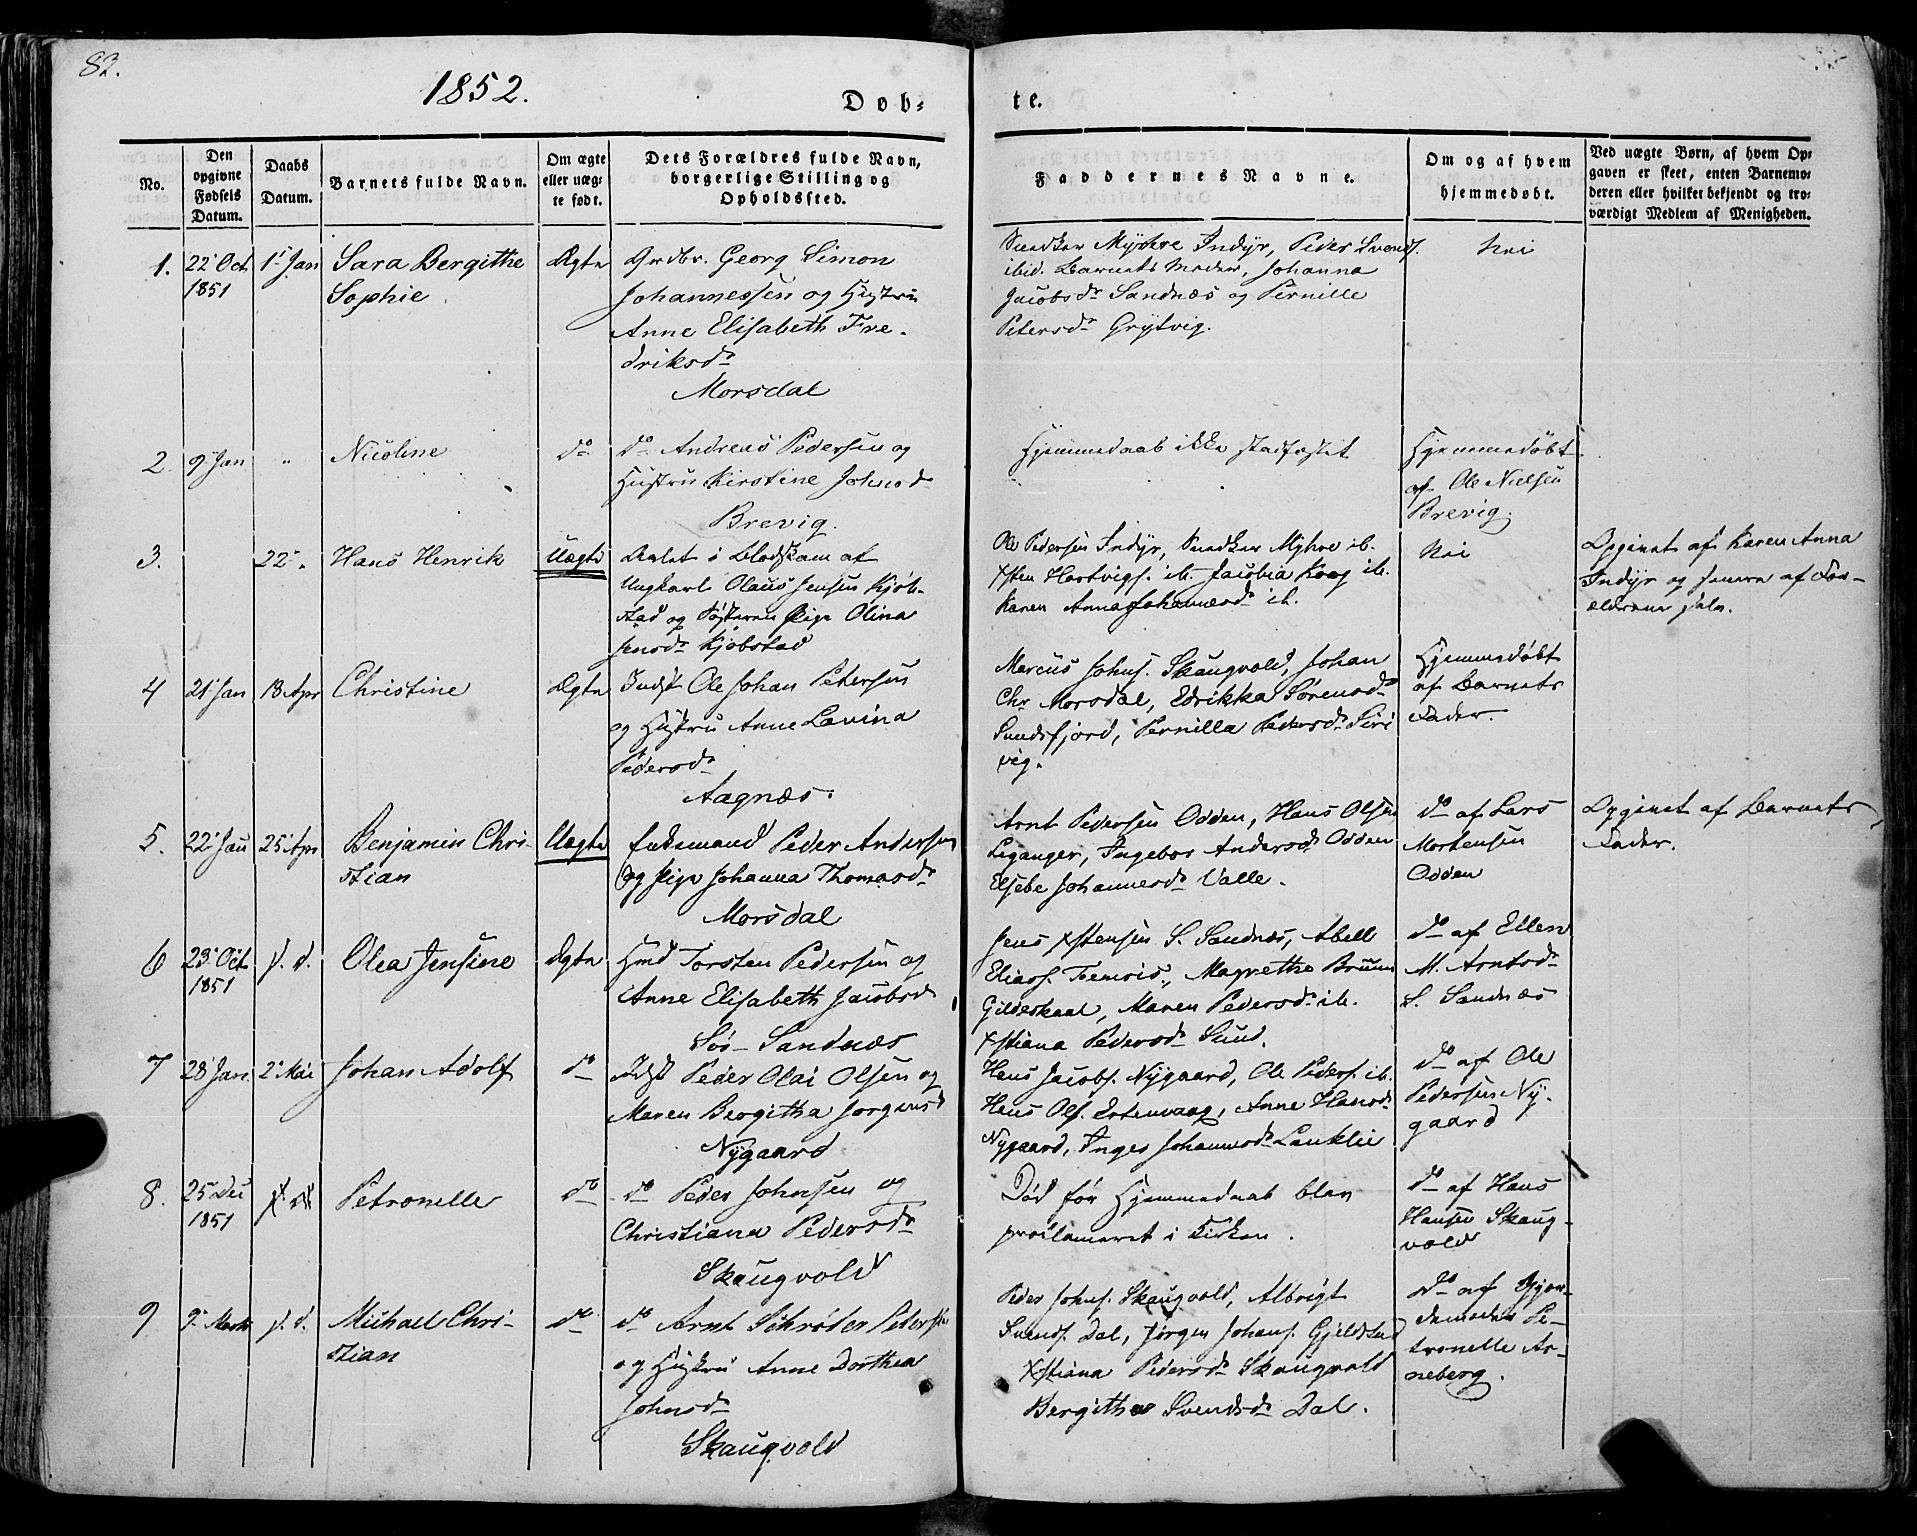 82.
1852.
Døb-
te.
No.
Den
opgivne
Fødsels
Datum.
Daabs
Datum.
Barnets fulde Navn.
Om ægte
eller uæg-
te født.
Dets Forældres fulde Navn,
borgerlige Stilling og
Opholdssted.
Faddernes Navne.
Om og af hvem
hjemmedøbt.
Ved uægte Børn, af hvem Op-
gaven er skeet, enten Barnemo-
deren eller hvilket bekjendt og tro-
værdigt Medlem af Menigheden.
1.
22 Oct
1851
1 Jan
Sara Bergitthe
Sophie
Ægte
Grdbr. Georg Simon
Johannessen og Hustru
Anne Elisabeth Fre-
driksdr
Morsdal
Snedker Myhre Indyr, Peder Svends.
ibid. Barnets Moder, Johanna
Jacobsdr Sandnæs og Pernille
Petersdr Grytvig.
Nei
2.
9 Jan
"
Nicoline
do
do Andreas Pedersen og
Hustru Kirstine Johnsd
Brevig.
Hjemmedaab ikke stadfæstet
Hjemmedøbt
af Ole Nielsen
Brevig.
3.
22 "
Hans Henrik
Uægte
Avlet i Blodskam af
Ungkarl Olaus Jensen Kjøb-
stad og Søsteren Pige Olina
Jensdr Kjøbstad
Ole Pedersen Indyr, Snedker Myhre ib.
Xsten Hartvigs. ib. Jacobia Koog ib.
Karen Anna Johannesdr ib.
Nei
Opgivet af Karen Anna
Indyr og senere af For-
ældrene selv.
4
21 Jan
18 Apr
Christine
Ægte
Indst Ole Johan Petersen
og Hustru Anne Lavina
Pedersdr
Aagnæs.
Marcus Johns. Skaugvold, Johan
Chr Morsdal, Edrikka Sørensdr
Sundsfjord, Pernilla Pedersdr Siri
vig.
Hjemmedøbt
af Barnets
Fader.
5.
22 Jan
25 Apr
Benjamin Chri-
stian
Uægte
Enkemand Peder Andersen
og Pige Johanna Thomasdr
Morsdal
Arnt Pedersen Odden, Hans Olsen
Leganger, Ingebor Andersdr Odden
Elsebe Johannesdr Valle.
do af Lars
Mortensen
Odden
Opgivet af Barnets
Fader.
6
23 Oct
1851
s. d.
Olea Jensine
Ægte
Hmd Torsten Pedersen og
Anne Elisabeth Jacobsd
Sør Sandnæs
Jens Xstensen S. Sandnæs, Abell
Elias. , Magrethe Bruun
Gildeskaal, Maren Pedersdr ib.
Xstiana Pedersdr Sund.
do af Ellen
M. Arntsdr
S. Sandnæs
7
28 Jan
2 Mai
Johan Adolf
do
Idst Peder Olai Olsen og
Maren Bergitha Jorgensd
Nygaard
Hans Jacobs. Nygaard, Ole Peders. ib.
Hans Ols. Ertenvaag, Anne Hansdr
Nygaard, Inger Johannesdr Lanklie
do af Ole
Pedersen Ny-
gaard
8.
25 Dec
1851
s. d.
Petronelle
do
do Peder Johnsen og
Christiana Pedersdr
Skaugvold
Død før Hjemmedaab blev
proclameret i Kirken.
do af Hans
Hansen Skaug-
vold
9
9 Marts
s. d.
Michael Chri-
stian
do
do Arnt Schrøder Petersen
og Hustru Anne Dorthea
Johnsdr
Skaugvold
Peder Johns. Skaugvold, Albrigt
Svends. Dal, Jørgen Johans. Gjeldstad
Xstiana Pedersdr Skaugvold
Bergitha Svendsdr Dal.
do af Gjor-
demoder Pe-
tronelle Ar-
neberg.